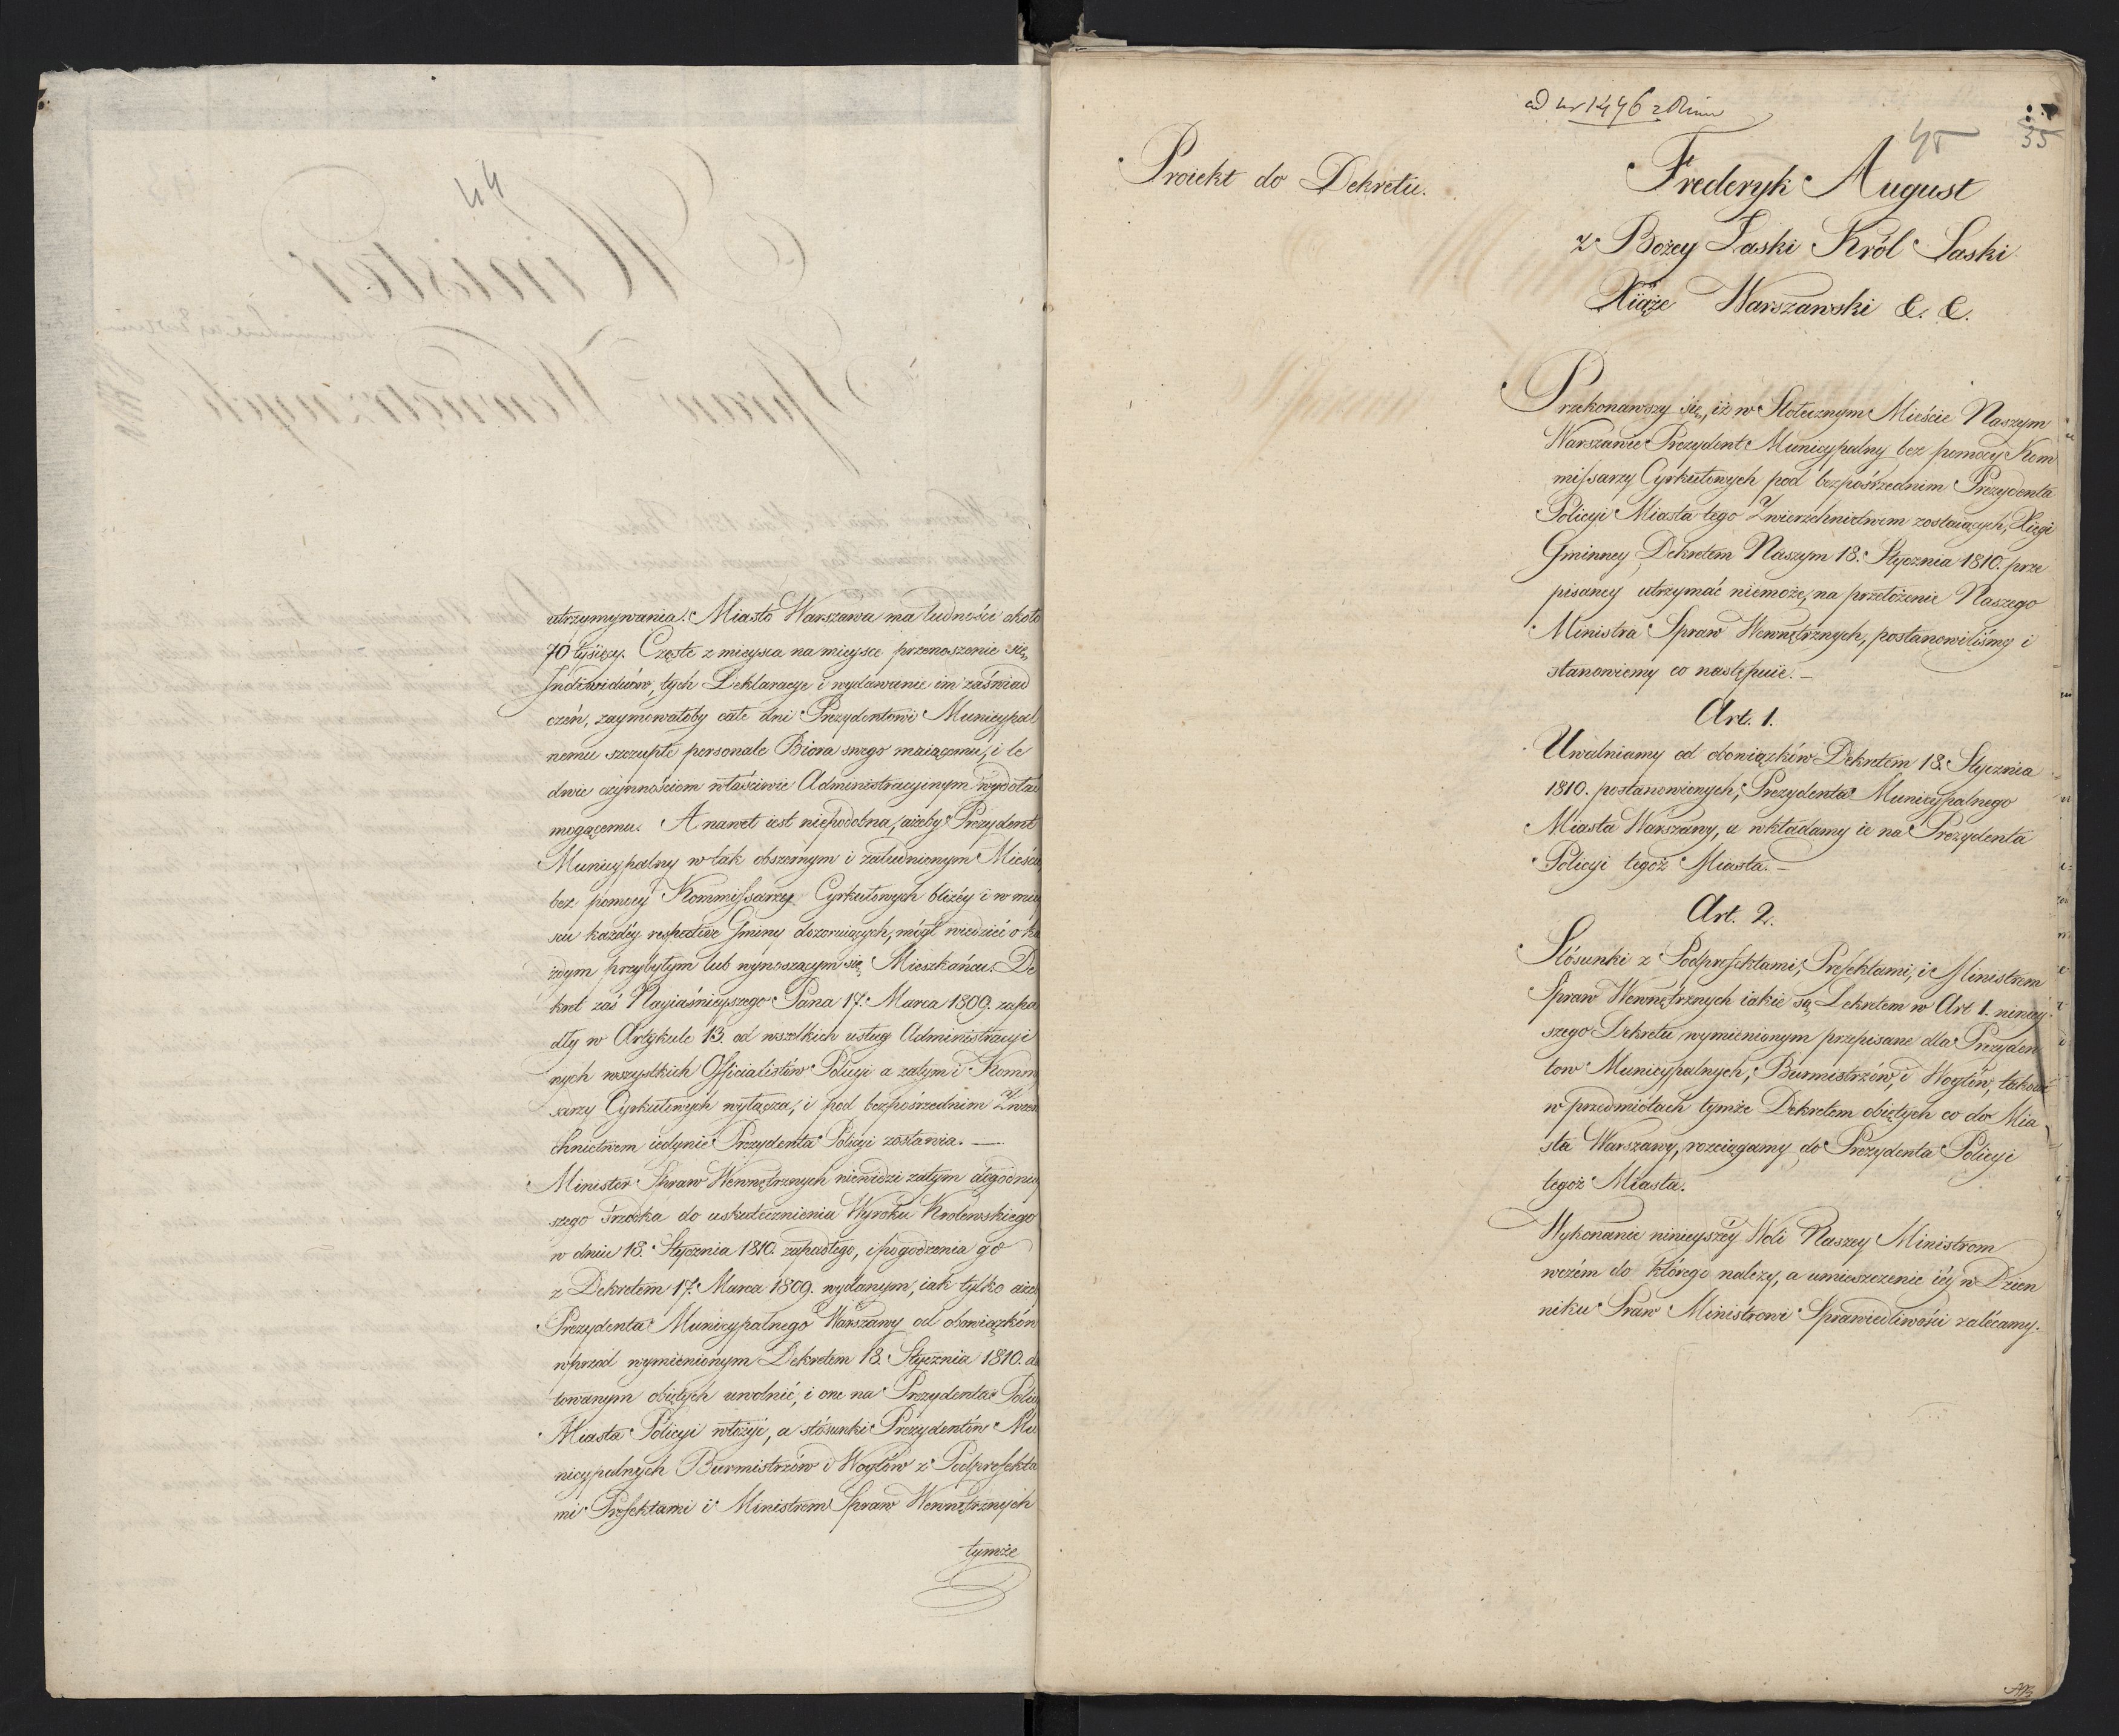 44
utrzymywania. Miasto Warszawa ma ludności około
70 tysięcy. Częste z mieysca na mieysce przenoszenie się
Indiwiduów, tych Deklaracye i wydawanie im zaświad
czeń, zaymowałoby całe dni Prezydentowi Municypal
nemu szczupłe personale Biora swego maiącemu, i le
dwie czynnościom właściwie Administracyinym wydołać
mogącemu. A nawet iest niepodobna, ażeby Prezydent
Municypalny w tak obszernym i zaludnionym Mieście,
bez pomocy Kommissarzy Cyrkułowych bliżéy i w miey
scu każdéy respective Gminy dozoruiących, mógł wiedzieć o ka
żdym przybyłym lub wynoszącym się Mieszkańcu. De
kret zaś Nayiaśnieyszego Pana 17. Marca 1809. zapa
dły w Artykule 13. od wszelkich usług Administracyi
nych wszystkich Officialistów Policyi a zatym i Kommi
sarzy Cyrkułowych wyłącza, i pod bezpośrzednim Zwierz
chnictwem iedynie Prezydenta Policyi zostawia. —
Minister Spraw Wewnętrznych niewidzi zatym dogodniey
szego śrzodka do uskutecznienia Wyroku Krolewskiego
w dniu 18. Stycznia 1810. zapadłego, i pogodzenia go
z Dekretem 17. Marca 1809. wydanym, iak tylko ażeby
Prezydenta Municypalnego Warszawy od obowiązków
wprzód wymienionym Dekretem 18. Stycznia 1810. da
towanym obiętych uwolnić, i one na Prezydenta Policyi
Miasta Policyi włożyć, a stósunki Prezydentów Mu
nicypalnych Burmistrzów i Woytów z Podprefekta
mi Prefektami i Ministrem Spraw Wewnętrznych
tymże
ad nr 1446
45
35
Proiekt do Dekretu.
Frederyk August
z Bożey Łaski Król Saski
Xiąże Warszawski &. &.
Przekonawszy się, iż w Stołecznym Mieście Naszym
Warszawie Prezydent Municypalny bez pomocy Kom
missarzy Cyrkułowych pod bezpośrzednim Prezydenta
Policyi Miasta tego Zwierzchnictwem zostaiących, Xięgi
Gminney Dekretem Naszym 18. Stycznia 1810. prze
pisaney utrzymać niemoże, na przełożenie Naszego
Ministra Spraw Wewnętrznych, postanowiliśmy i
stanowiemy co następuie. —
Art. 1.
Uwalniamy od obowiązków Dekretem 18. Stycznia
1810. postanowionych, Prezydenta Municypalnego
Miasta Warszawy, a wkładamy ie na Prezydenta
Policyi tegoż Miasta. —
Art. 2.
Stósunki z Podprefektami, Prefektami, i Ministrem
Spraw Wewnętrznych iakie są Dekretem w Art 1. niniey
szego Dekretu wymienionym przepisane dla Prezyden
tow Municypalnych, Burmistrzów, i Woytów, takowe
w przedmiotach tymże Dekretem obiętych co do Mia
sta Warszawy, rozciągamy do Prezydenta Policyi
tegoż Miasta.
Wykonanie ninieyszéy Woli Naszey Ministrom
wczém do którego należy, a umieszczenie iéy w Dzien
niku Praw Ministrowi Sprawiedliwości zalécamy.